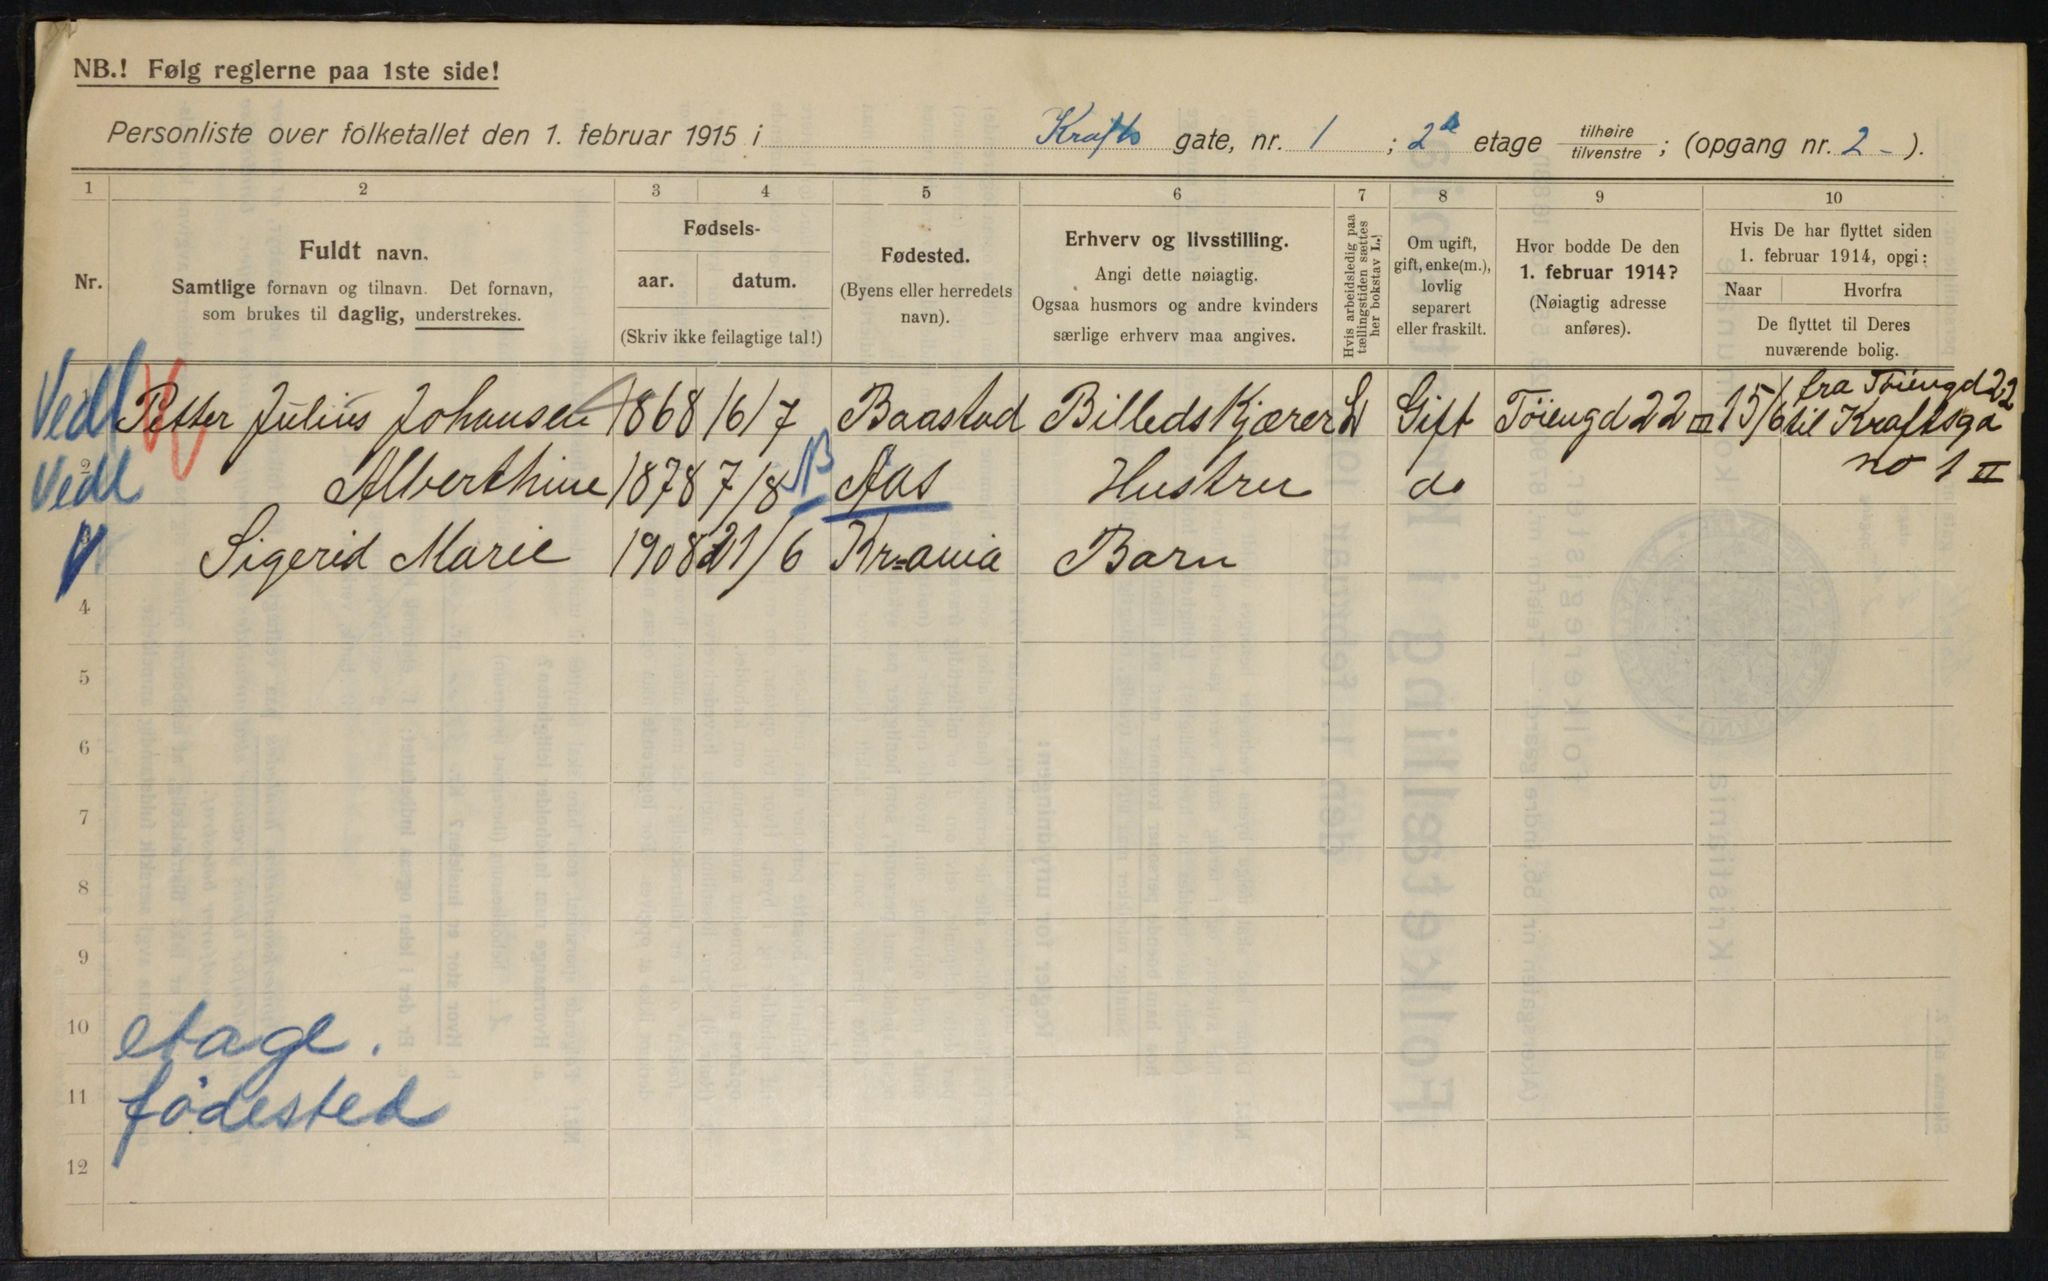 NB.! Følg reglerne paa 1ste side!
Personliste over folketallet den 1. februar 1915 i Krafts gate, nr. 1 ; 2 etage tilhøire/tilvenstre ; (opgang nr. 2 - ).
1 2 3 4 5 6 7 8 9 10
Nr.
Fuldt navn.
Samtlige fornavn og tilnavn. Det fornavn,
som brukes til daglig, understrekes.
Fødsels-
aar. datum.
(Skriv ikke feilagtige tal!)
Fødested.
(Byens eller herredets
navn).
Erhverv og livsstilling.
Angi dette nøiagtig.
Ogsaa husmors og andre kvinders
særlige erhverv maa angives.
Hvis arbeidsledig paa
tællingstiden sættes
her bokstav L.!
Om ugift,
gift, enke(m.),
lovlig
separert
eller fraskilt.
Hvor bodde De den
1. februar 1914?
(Nøiagtig adresse
anføres).
Hvis De har flyttet siden
1. februar 1914, opgi:
Naar Hvorfra
De flyttet til Deres
nuværende bolig.
Vedl Petter Julius Johansen 1868 16/7 Baastad BilledsKjærer L Gift Töiengd 22 III 15/6 fra Töiengd 22
til Kraftsga
no 1 II
Vedl 2 Alberthine 1878 7/8 N B Aas Hustru do
Sigerid Marie 1908 21/6 Kr=ania Barn
4
5
6
7
8
9
10 etage.
11 fødested
12